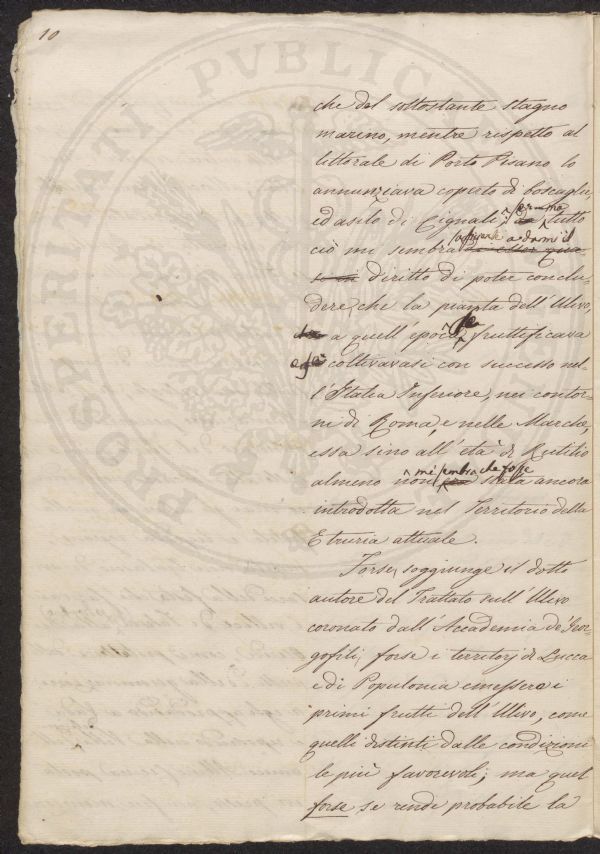 10
PROSPERITATI PUBLICAE
che del sottostante stagno
marino, mentre rispetto al
littorale di Porto Pisano lo
annunziava coperto di boscaglie,
ed asilo di Cignali: tutto
ciò mi sembra a darmi il
diritto di poter conclu-
dere, che la pianta dell'Ulivo,
a quell'epoca se fruttificava
e coltivavasi con successo nel-
l'Italia Inferiore, nei contor-
ni di Roma, e nelle Marche,
essa sino all'età di Rutilio
almeno non mi sembra che fosse stata ancora
introdotta nel Territorio della
Etruria attuale.
Forse, soggiunge il dotto
autore del Trattato sull'Ulivo
coronato dall'Accademia de' Geor-
gofili, forse i territorj di Lucca
e di Populonia emessero i
primi frutti dell'Ulivo, come
quelli distinti dalle condizioni
le più favorevoli; ma quel
forse se rende probabile la